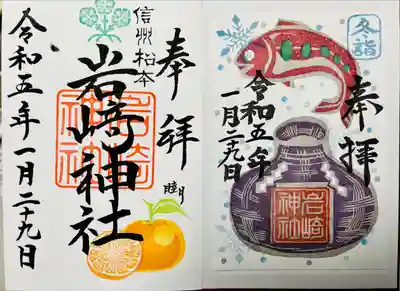 冬詣
奉拝
令和五年
一月二十九日
岩崎神社
奉拝
睦月
信州松本
岩崎神社
岩崎神社
令和五年一月二十九日